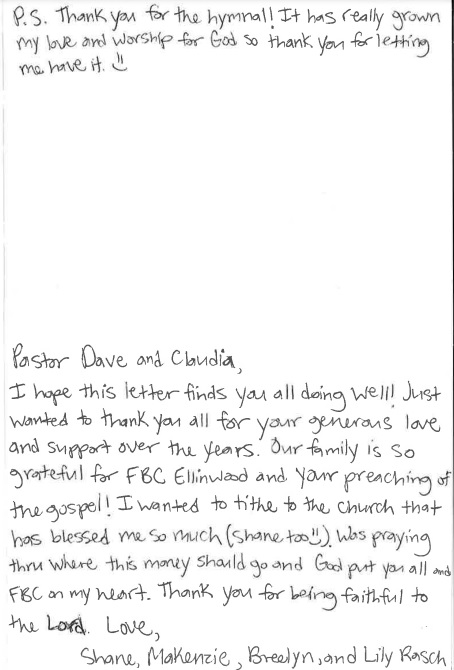 P.S. Thank you for the hymnal! It has really grown
my love and worship for God so thank you for letting
me have it. :)
Pastor Dave and Claudia,
I hope this letter finds you all doing well! Just
wanted to thank you all for your generous love
and support over the years. Our family is so
grateful for FBC Ellinwood and your preaching of
the gospel! I wanted to tithe to the church that
has blessed me so much (Shane too!:)). Was praying
thru where this money should go and God put you all and
FBC on my heart. Thank you for being faithful to
the Lord. Love,
Shane, Makenzie, Breelyn, and Lily Rasch